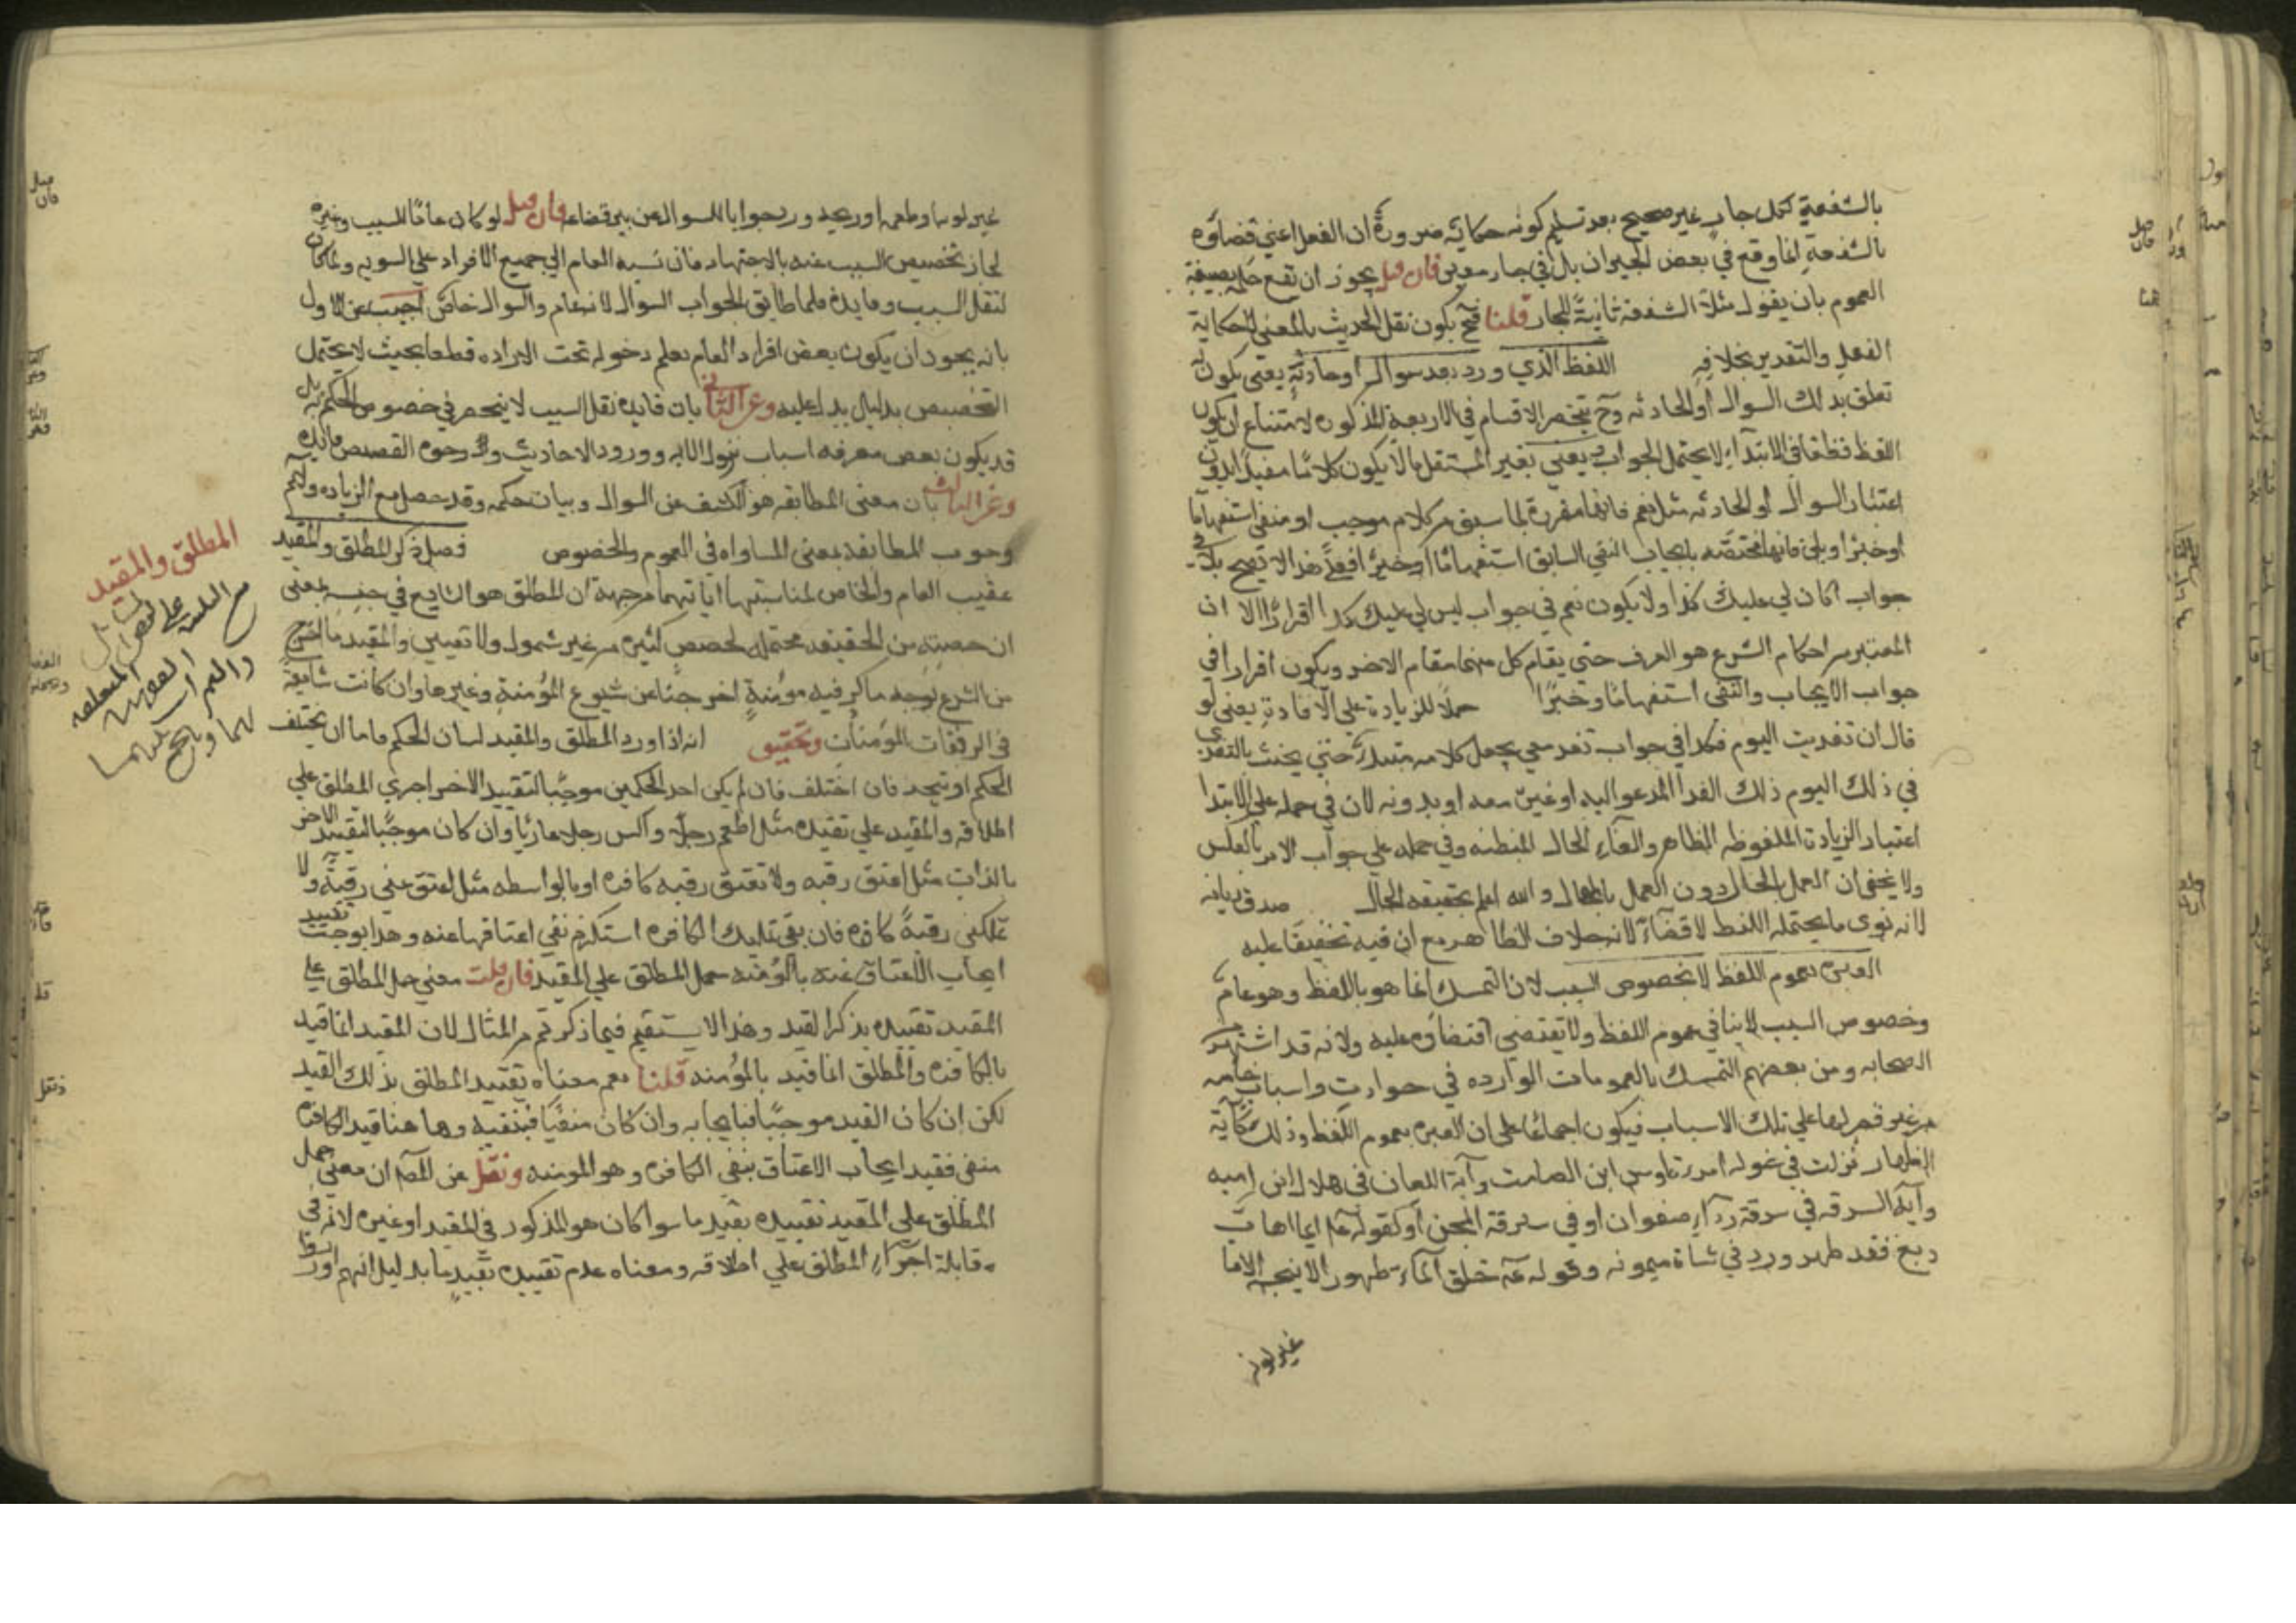 بالشفعة لكل جار غير صحيح بعد تسليم كونه حكاية ضرورة ان الفعل اعني قضاؤه
بالشفعة انما وقع في بعض الجيران بل في جار معين فان قيل يجوز ان تقع حكمه بصيغة
العموم بان يقول مثلا الشفعة ثابتة للجار قلنا فح يكون نقل الحديث بالمعنى لا حكاية
الفعل والتقدير بخلافه اللفظ الذي ورد بعد سوال او حادثة يعني يكون له
تعلق بذلك السوال او الحادثه وح تنحصر الاقسام في الاربعة المذكوره لامتناع ان يكون
اللفظ قطعا في الابتداء لا يحتمل الجواب يعني بغير المستقل ما لا يكون كلاما مفيدا بدون
اعتبار السوال او الحادثه مثل نعم فانها مقررة لما سبق من كلام موجب او منفي استفهاما
او خبرا وبلى فانها مختصه بايجاب النفي السابق استفهاما او خبرا فعلى هذا لا تصح بلى في
جواب اكان لي عليك كذا ولا يكون نعم في جواب ليس لي عليك كذا اقرارا الا ان
المعتبر من احكام الشرع هو العرف حتي يقام كل منهما مقام الاخر ويكون اقرارا في
جواب الايجاب والنفي استفهاما وخبرا حملا للزيادة علي الافادة يعني لو
قال ان تغديت اليوم فكذا في جواب تغد معي يجعل كلامه مبتداء حتي يحنث بالتغدي
في ذلك اليوم ذلك الغدا المدعو اليه او غيره معه او بدونه لان في حمله على الابتدا
اعتبار الزيادة الملفوظه الظاهر والغاء الحال المبطنه وفي حمله علي جواب الامر بالعكس
ولا يخفى ان العمل بالحال دون العمل بالمقال والله اعلم بحقيقه الحال صدق ديانه
لانه نوى ما يحتمله اللفظ لا قضاء لانه خلاف الظاهر مع ان فيه تخفيفا عليه
العبره بعموم اللفظ لا بخصوص السبب لان التمسك انما هو باللفظ وهو عام
وخصوص السبب لا ينافي عموم اللفظ ولا يقتضي اقتضاؤه عليه ولانه قد اشتهر من
الصحابه ومن بعضهم التمسك بالعمومات الوارده في حوادث واسباب خاصه
من غير قصر لها على تلك الاسباب فيكون اجماعا على ان العبره بعموم اللفظ وذلك كآية
الظهار نزلت في خوله امرءة اوس ابن الصامت وآية اللعان في هلال ابن اميه
وآية السرقه في سرقة رداء صفوان او في سرقة المجن او كقوله عم ايما اهاب
دبغ فقد طهر ورد في شاة ميمونه وقوله عم خلق الماء طهور لا ينجسه الا ما
غير لونه
غير لونه او طعمه او ريحه ورد جوابا للسوال عن بير قضاعه فان قيل لو كان عاما للسبب وغيره
لجاز تخصيص السبب عنه بالاجتهاد فان نسبه العام الي جميع الافراد علي السويه ولما كان
لنقل السبب وفايده ولما طابق الجواب السوال لانه عام والسوال خاص اجيب عن الاول
بانه يجوز ان يكون بعض افراد العام يعلم دخوله تحت الاراده قطعا بحيث لا يحتمل
التخصيص بدليل يدل عليه وعن الثاني بان فايده نقل السبب لا ينحصر في خصوص الحكم به بل
قد يكون بعض معرفه اسباب نزول الايه وورود الاحاديث ووجوه القصص فايده
وعن الثالث بان معنى المطابقه هو الكشف عن السوال وبيان حكمه وقد حصل مع الزياده ولا نم
وجوب المطابقه بمعنى المساواه في العموم والخصوص فصل ذكر المطلق والمقيد
عقيب العام والخاص لمناسبتهما اياتهما من جهة ان المطلق هو الشايع في جنسه بمعنى
ان حصته من الحقيقه محتمله لحصص كثيره من غير شمول ولا تعيين والمقيد ما اخرج
من الشيوع بوجه ما كرقبه مومنة اخرجت عن شيوع المؤمنة وغيرها وان كانت شايعة
في الرقبات المؤمنات وتحقيق انه اذا ورد المطلق والمقيد لبيان الحكم فاما ان يختلف
الحكم او يتحد فان اختلف فان لم يكن احد الحكمين موجبا لتقييد الاخر اجري المطلق على
اطلاقه والمقيد علي تقييده مثل اطعم رجلا واكس رجلا عاريا وان كان موجبا لتقييد الاخر
بالذات مثل اعتق رقبه ولا تعتق رقبه كافره او بالواسطه مثل اعتق عني رقبة ولا
تملكني رقبة كافره فان نفي تمليك الكافره استلزم نفي اعتاقها عنه وهذا يوجب تقييد
ايجاب الاعتاق عنه بالمؤمنه حمل المطلق علي المقيد فان قلت معني حمل المطلق على
المقيد تقييده بذكر القيد وهذا لا يستقيم فيما ذكرتم من المثال لان المقيد انما قيد
بالكافره والمطلق انما قيد بالمؤمنه قلنا نعم معناه تقييد المطلق بذلك القيد
لكن ان كان القيد موجبا فبايجابه وان كان منفيا فبنفيه وها هنا قيد الكافرة
منفي فقيد ايجاب الاعتاق بنفي الكافره وهو المومنه ونقل عن المص ان معنى حمل
المطلق علي المقيد تقييده بقيد ما سوا كان هو المذكور في المقيد او غيره لانه في
مقابلة اجراء المطلق علي اطلاقه ومعناه عدم تقييده بقيد ما بدليل انهم اوردوا
المطلق والمقيد